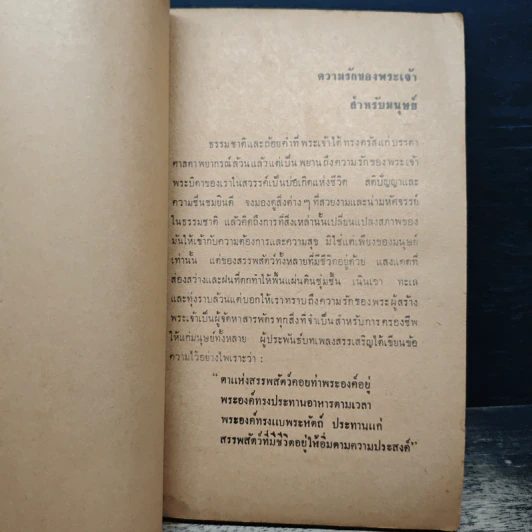 ความรักของพระเจ้า
สำหรับมนุษย์
ธรรมชาติและถ้อยคำที่พระเจ้าได้ทรงตรัสแก่บรรดา
ศาสดาพยากรณ์ล้วนแล้วแต่เป็นพยานถึงความรักของพระเจ้า
พระบิดาของเราในสวรรค์เป็นบ่อเกิดแห่งชีวิต สติปัญญาและ
ความชื่นชมยินดี จงมองดูสิ่งต่างๆ ที่สวยงามและน่ามหัศจรรย์
ในธรรมชาติ แล้วคิดถึงการที่สิ่งเหล่านั้นเปลี่ยนแปลงสภาพของ
มันให้เข้ากับความต้องการและความสุข มิใช่แต่เพียงของมนุษย์
เท่านั้น แต่ของสรรพสัตว์ทั้งหลายที่มีชีวิตอยู่ด้วย แสงแดดที่
ส่องสว่างและฝนที่ตกทำให้พื้นแผ่นดินชุ่มชื้น เนินเขา ทะเล
และทุ่งราบล้วนแต่บอกให้เราทราบถึงความรักของพระผู้สร้าง
พระเจ้าเป็นผู้จัดหาสารพัดทุกสิ่งที่จำเป็นสำหรับการครองชีพ
ให้แก่มนุษย์ทั้งหลาย ผู้ประพันธ์บทเพลงสรรเสริญได้เขียนข้อ
ความไว้อย่างไพเราะว่า :
“ตาแห่งสรรพสัตว์คอยท่าพระองค์อยู่
พระองค์ทรงประทานอาหารตามเวลา
พระองค์ทรงแบพระหัตถ์ ประทานแก่
สรรพสัตว์ที่มีชีวิตอยู่ให้อิ่มตามความประสงค์”